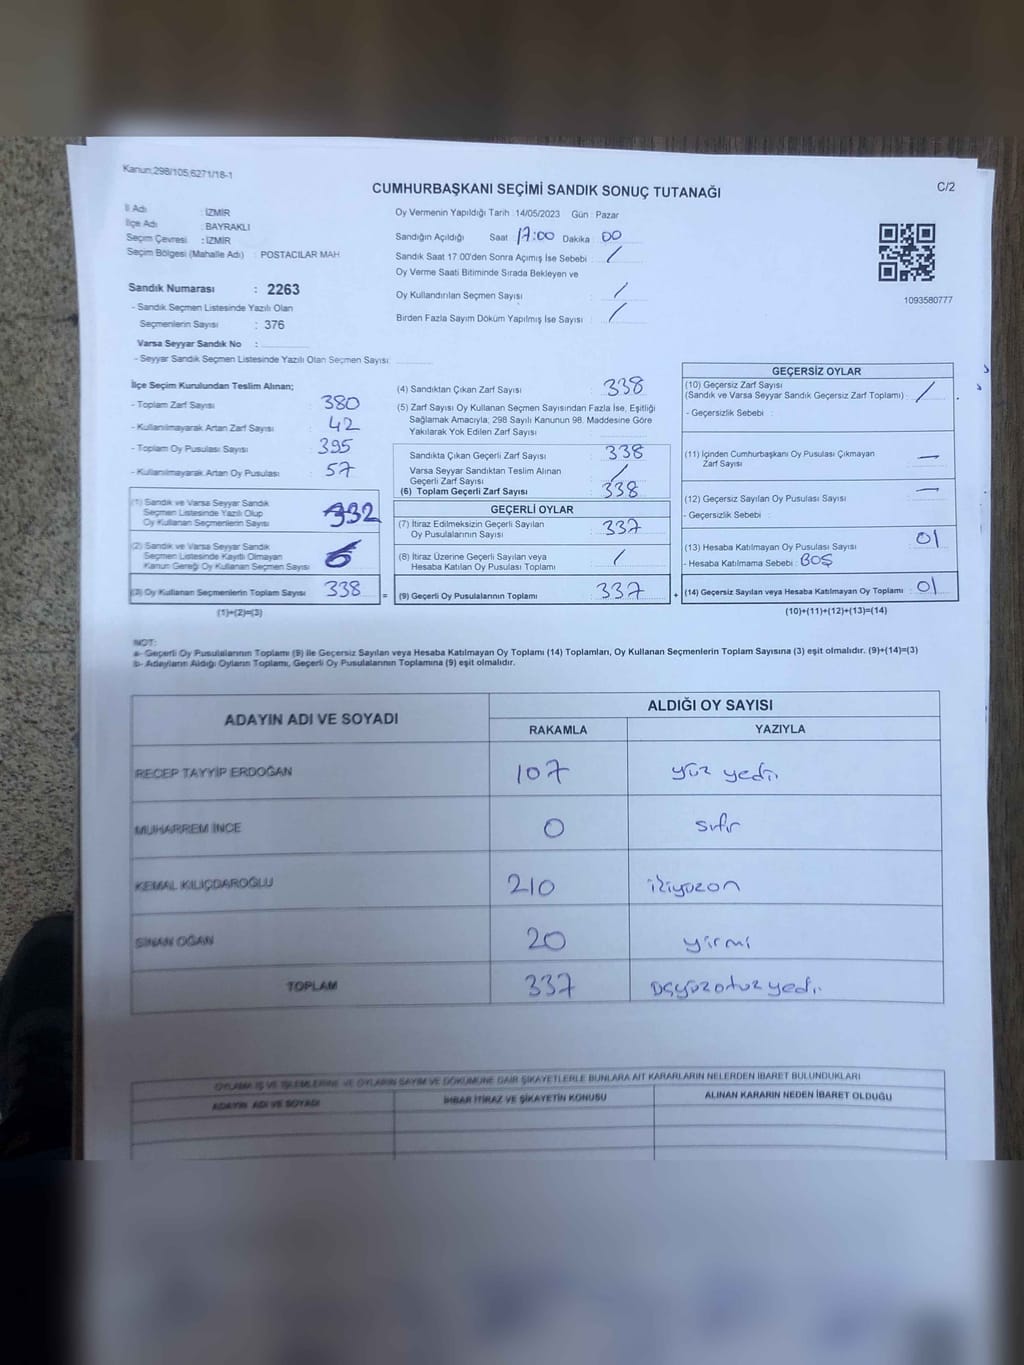 Kanun:298/105,6271/18-1
CUMHURBAŞKANI SEÇİMİ SANDIK SONUÇ TUTANAĞI
C/2
İl Adı : İZMİR
İlçe Adı : BAYRAKLI
Seçim Çevresi : İZMİR
Seçim Bölgesi (Mahalle Adı) : POSTACILAR MAH
Sandık Numarası : 2263
- Sandık Seçmen Listesinde Yazılı Olan
Seçmenlerin Sayısı : 376
Varsa Seyyar Sandık No :
- Seyyar Sandık Seçmen Listesinde Yazılı Olan Seçmen Sayısı:
Oy Vermenin Yapıldığı Tarih : 14/05/2023 Gün : Pazar
Sandığın Açıldığı Saat 17:00 Dakika : 00
Sandık Saat 17.00'den Sonra Açımış İse Sebebi : /
Oy Verme Saati Bitiminde Sırada Bekleyen ve
Oy Kullandırılan Seçmen Sayısı : /
Birden Fazla Sayım Döküm Yapılmış İse Sayısı : /
1093580777
İlçe Seçim Kurulundan Teslim Alınan;
- Toplam Zarf Sayısı : 380
- Kullanılmayarak Artan Zarf Sayısı : 42
- Toplam Oy Pusulası Sayısı : 395
- Kullanılmayarak Artan Oy Pusulası : 57
(1) Sandık ve Varsa Seyyar Sandık
Seçmen Listesinde Yazılı Olup
Oy Kullanan Seçmenlerin Sayısı : 332
(2) Sandık ve Varsa Seyyar Sandık
Seçmen Listesinde Kayıtlı Olmayan
Kanun Gereği Oy Kullanan Seçmen Sayısı : 6
(3) Oy Kullanan Seçmenlerin Toplam Sayısı : 338
(1)+(2)=(3)
(4) Sandıktan Çıkan Zarf Sayısı : 338
(5) Zarf Sayısı Oy Kullanan Seçmen Sayısından Fazla İse, Eşitliği
Sağlamak Amacıyla, 298 Sayılı Kanunun 98. Maddesine Göre
Yakılarak Yok Edilen Zarf Sayısı :
Sandıkta Çıkan Geçerli Zarf Sayısı : 338
Varsa Seyyar Sandıktan Teslim Alınan
Geçerli Zarf Sayısı : /
(6) Toplam Geçerli Zarf Sayısı : 338
GEÇERLİ OYLAR
(7) İtiraz Edilmeksizin Geçerli Sayılan
Oy Pusulalarının Sayısı : 337
(8) İtiraz Üzerine Geçerli Sayılan veya
Hesaba Katılan Oy Pusulası Toplamı : /
= (9) Geçerli Oy Pusulalarının Toplamı : 337
GEÇERSİZ OYLAR
(10) Geçersiz Zarf Sayısı
(Sandık ve Varsa Seyyar Sandık Geçersiz Zarf Toplamı) : /
- Geçersizlik Sebebi :
(11) İçinden Cumhurbaşkanı Oy Pusulası Çıkmayan
Zarf Sayısı : —
(12) Geçersiz Sayılan Oy Pusulası Sayısı : —
- Geçersizlik Sebebi :
(13) Hesaba Katılmayan Oy Pusulası Sayısı : 01
- Hesaba Katılmama Sebebi : BOŞ
+ (14) Geçersiz Sayılan veya Hesaba Katılmayan Oy Toplamı : 01
(10)+(11)+(12)+(13)=(14)
NOT:
a- Geçerli Oy Pusulalarının Toplamı (9) ile Geçersiz Sayılan veya Hesaba Katılmayan Oy Toplamı (14) Toplamları, Oy Kullanan Seçmenlerin Toplam Sayısına (3) eşit olmalıdır. (9)+(14)=(3)
b- Adayların Aldığı Oyların Toplamı, Geçerli Oy Pusulalarının Toplamına (9) eşit olmalıdır.
ADAYIN ADI VE SOYADI
ALDIĞI OY SAYISI
RAKAMLA YAZIYLA
RECEP TAYYİP ERDOĞAN 107 yüz yedi
MUHARREM İNCE 0 sıfır
KEMAL KILIÇDAROĞLU 210 ikiyüzon
SİNAN OĞAN 20 yirmi
TOPLAM 337 üçyüzotuzyedi
OYLAMA İŞ VE İŞLEMLERİNE VE OYLARIN SAYIM VE DÖKÜMÜNE DAİR ŞİKAYETLERLE BUNLARA AİT KARARLARIN NELERDEN İBARET BULUNDUKLARI
ADAYIN ADI VE SOYADI İHBAR İTİRAZ VE ŞİKAYETİN KONUSU ALINAN KARARIN NEDEN İBARET OLDUĞU